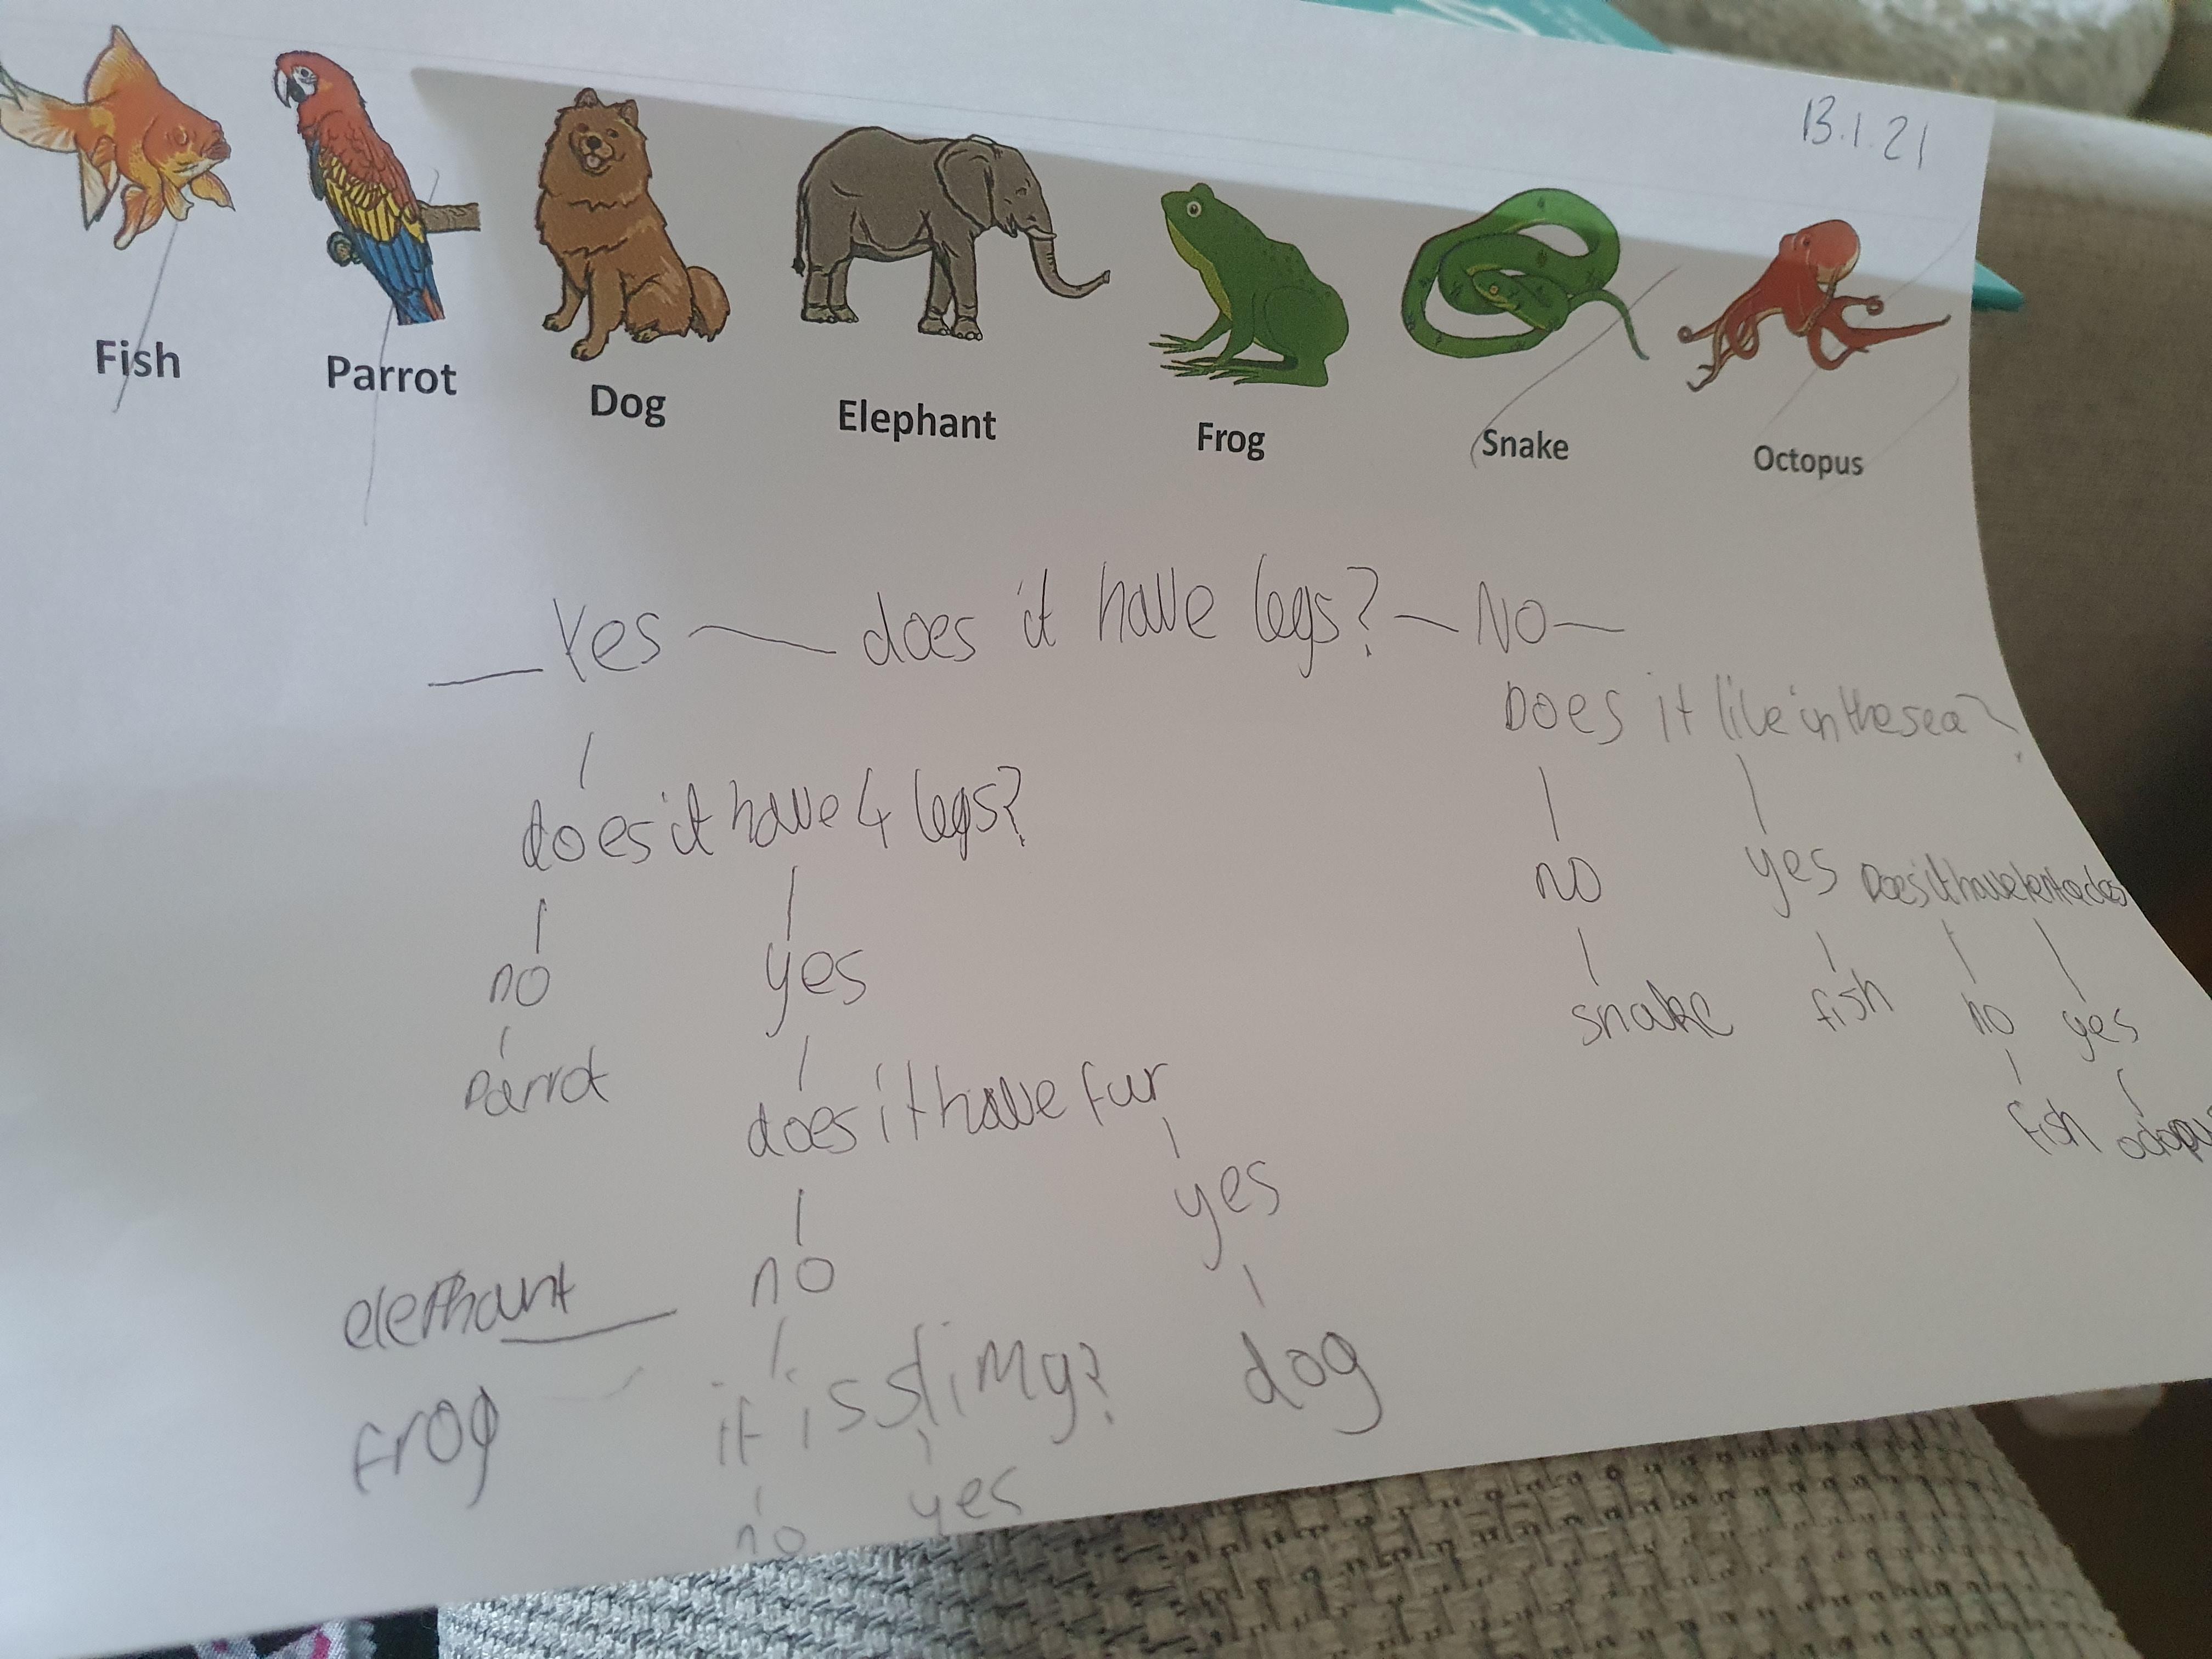 13.1.21
Fish
Parrot
Dog
Elephant
Frog
Snake
Octopus
Yes does it have legs? No
Does it live in the sea?
does it have 4 legs?
no yes Does it have tentacles
no yes
snake fish no yes
Parrot
does it have fur
fish octopus
yes
no
elephant
it is slimy? dog
frog
no yes